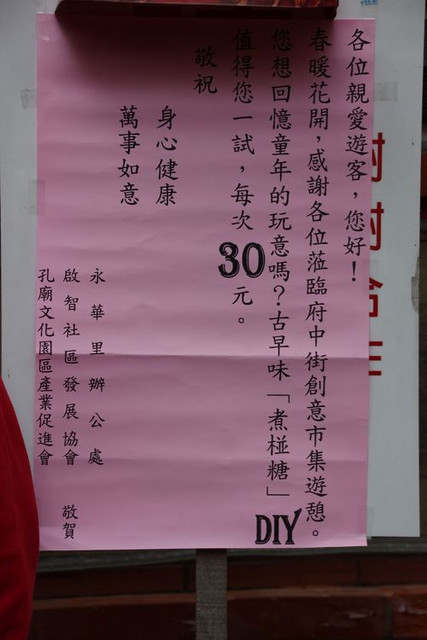 各位親愛遊客，您好！
春暖花開，感謝各位蒞臨府中街創意市集遊憩。
您想回憶童年的玩意嗎？古早味「煮椪糖」DIY
值得您一試，每次30元。
敬祝
身心健康
萬事如意
永華里辦公處
啟智社區發展協會 敬賀
孔廟文化園區產業促進會